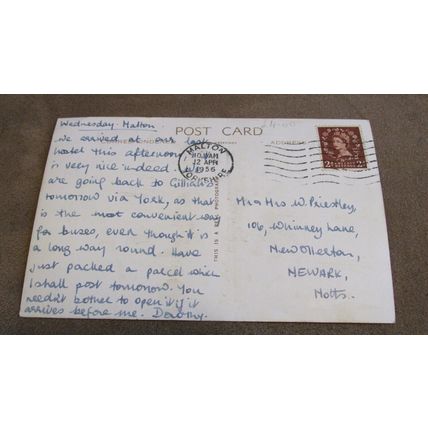 £4.00
POST CARD
CORRESPONDENCE
ADDRESS
Wednesday. Malton.
We arrived at our last
hostel this afternoon,
is very nice indeed. We
are going back to Gillian's
tomorrow via York, as that
is the most convenient way
for buses, even though it is
a long way round. Have
just packed a parcel which
I shall post tomorrow. You
needn't bother to open it if it
arrives before me. Dorothy.
THIS IS A REAL PHOTOGRAPH
MALTON
12 APR
1956
YORKSHIRE
Mr & Mrs W. Priestley,
106, Whinney Lane,
New Ollerton,
NEWARK,
Notts.